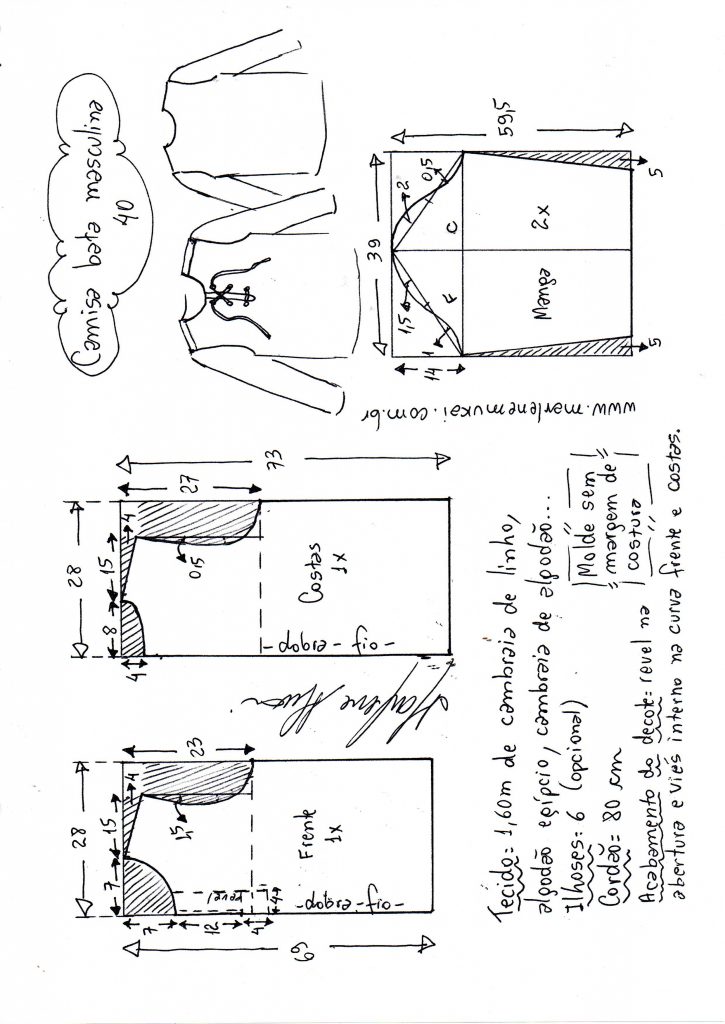 Camisa bata masculina
40
28
7
15
4
23
1,5
7
12
4
4
revel
-dobra-fio-
Frente
1x
69
28
8
15
4
4
27
0,5
-dobra-fio-
Costas
1x
73
www.marlenemukai.com.br
39
59,5
14
1
1,5
2
0,5
F
C
Manga
2x
5
5
Tecido: 1,60m de cambraia de linho,
algodão egípcio, cambraia de algodão...
Ilhoses: 6 (opcional)
Cordão: 80 cm
Acabamento do decote: revel na
abertura e viés interno na curva frente e costas.
Molde sem
margem de
costura